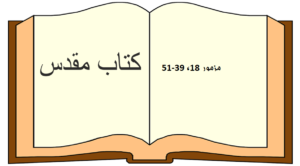 کتاب مقدس
18، 39-51